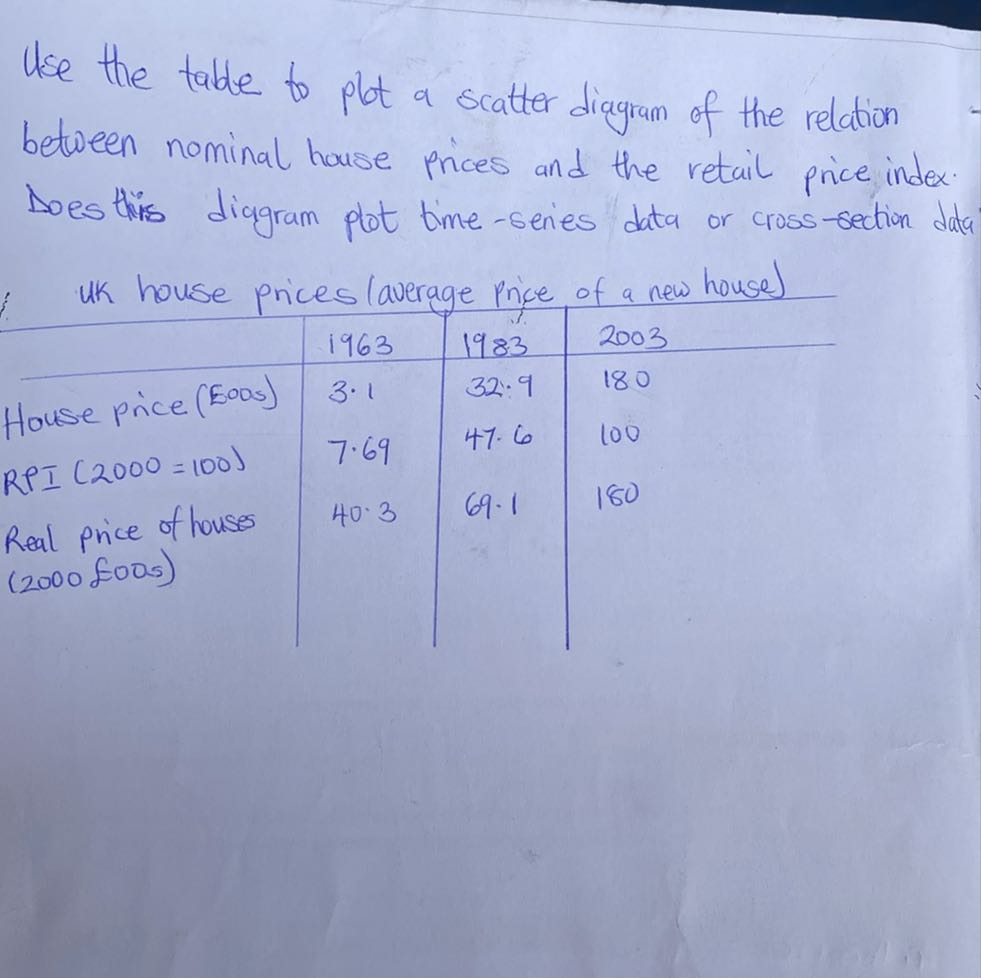 Use the table to plot a scatter diagram of the relation
between nominal house prices and the retail price index.
Does this diagram plot time-series data or cross-section data
UK house prices (average price of a new house)
1963 1983 2003
House price (£00s) 3.1 32.9 180
RPI (2000 = 100) 7.69 47.6 100
Real price of houses 40.3 69.1 180
(2000 £00s)